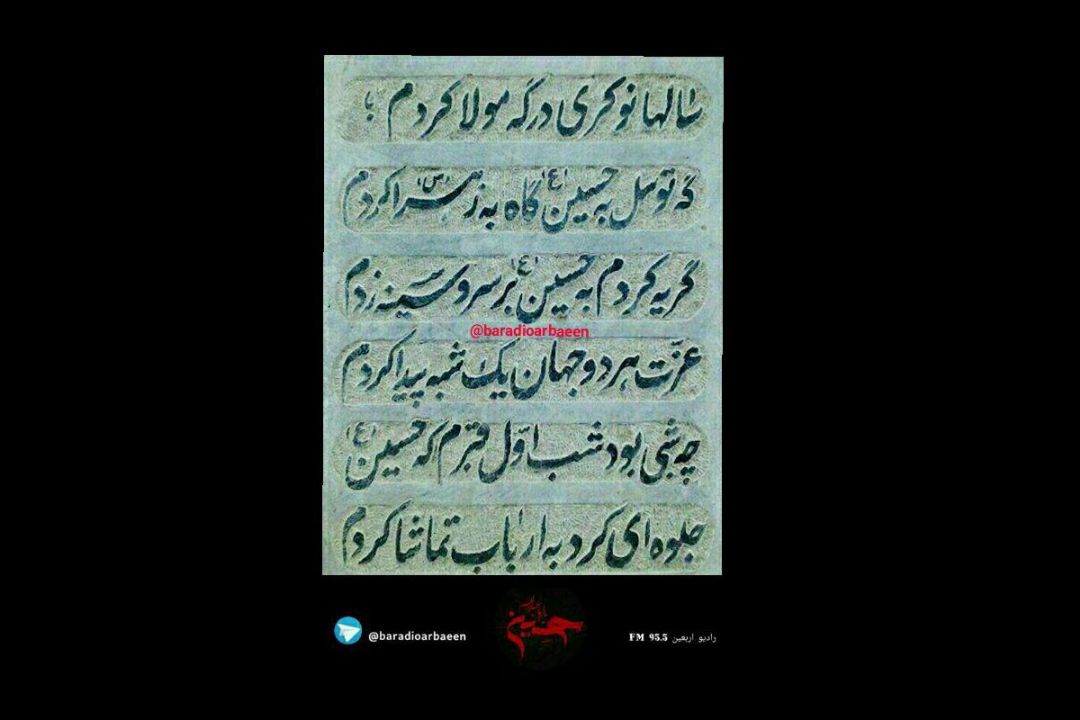 سالها نوکری درگه مولا کردم ؛
گه توسل به حسین (ع) گاه به زهرا (س) کردم
گریه کردم به حسین (ع) بر سر و سینه زدم
@baradioarbaeen
عزّت هر دو جهان یک شبه پیدا کردم
چه شبی بود شب اوّل قبرم که حسین (ع)
جلوه ای کرد به ارباب تماشا کردم
حسین
@baradioarbaeen
رادیو اربعین FM 95.5